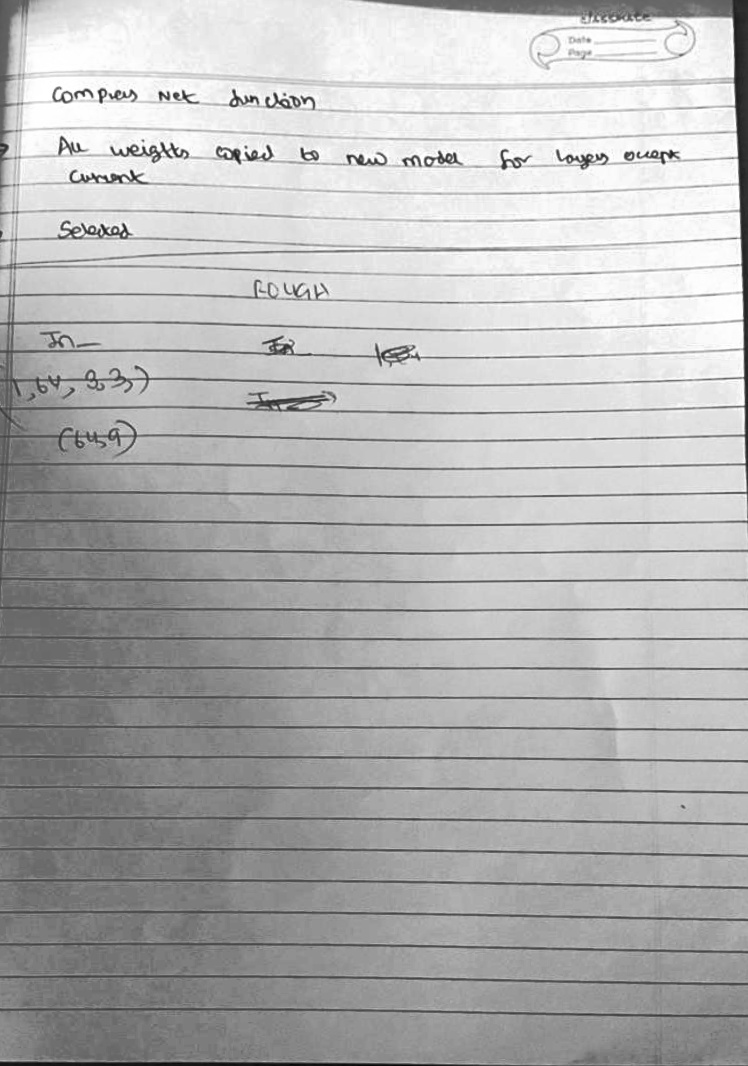 classmate
Date
Page
Compress Net function
All weights copied to new model for layers except
current
Selected
ROUGH
In
1,64, 3,3,)
(64,9)